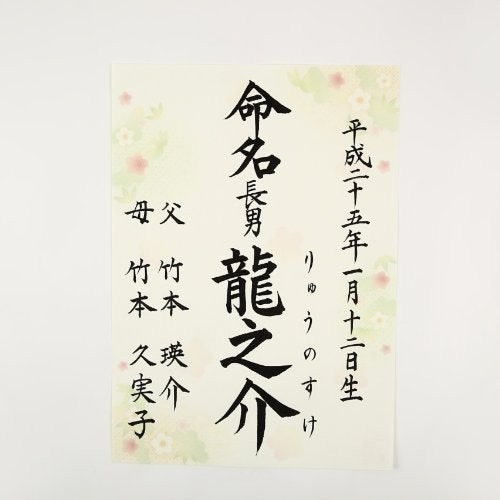 平成二十五年一月十二日生
りゅうのすけ
命名 長男 龍之介
父 竹本 瑛介
母 竹本 久実子